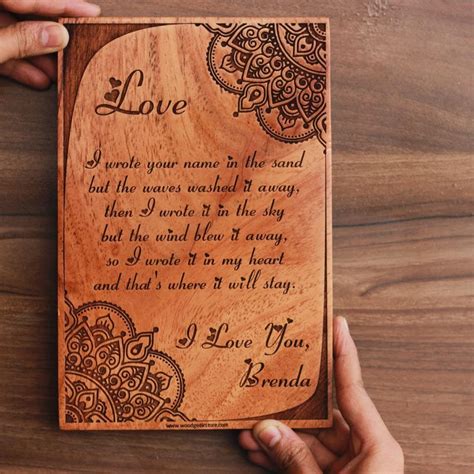 Love
I wrote your name in the sand
but the waves washed it away,
then I wrote it in the sky
but the wind blew it away,
so I wrote it in my heart
and that's where it will stay.
I Love You,
Brenda